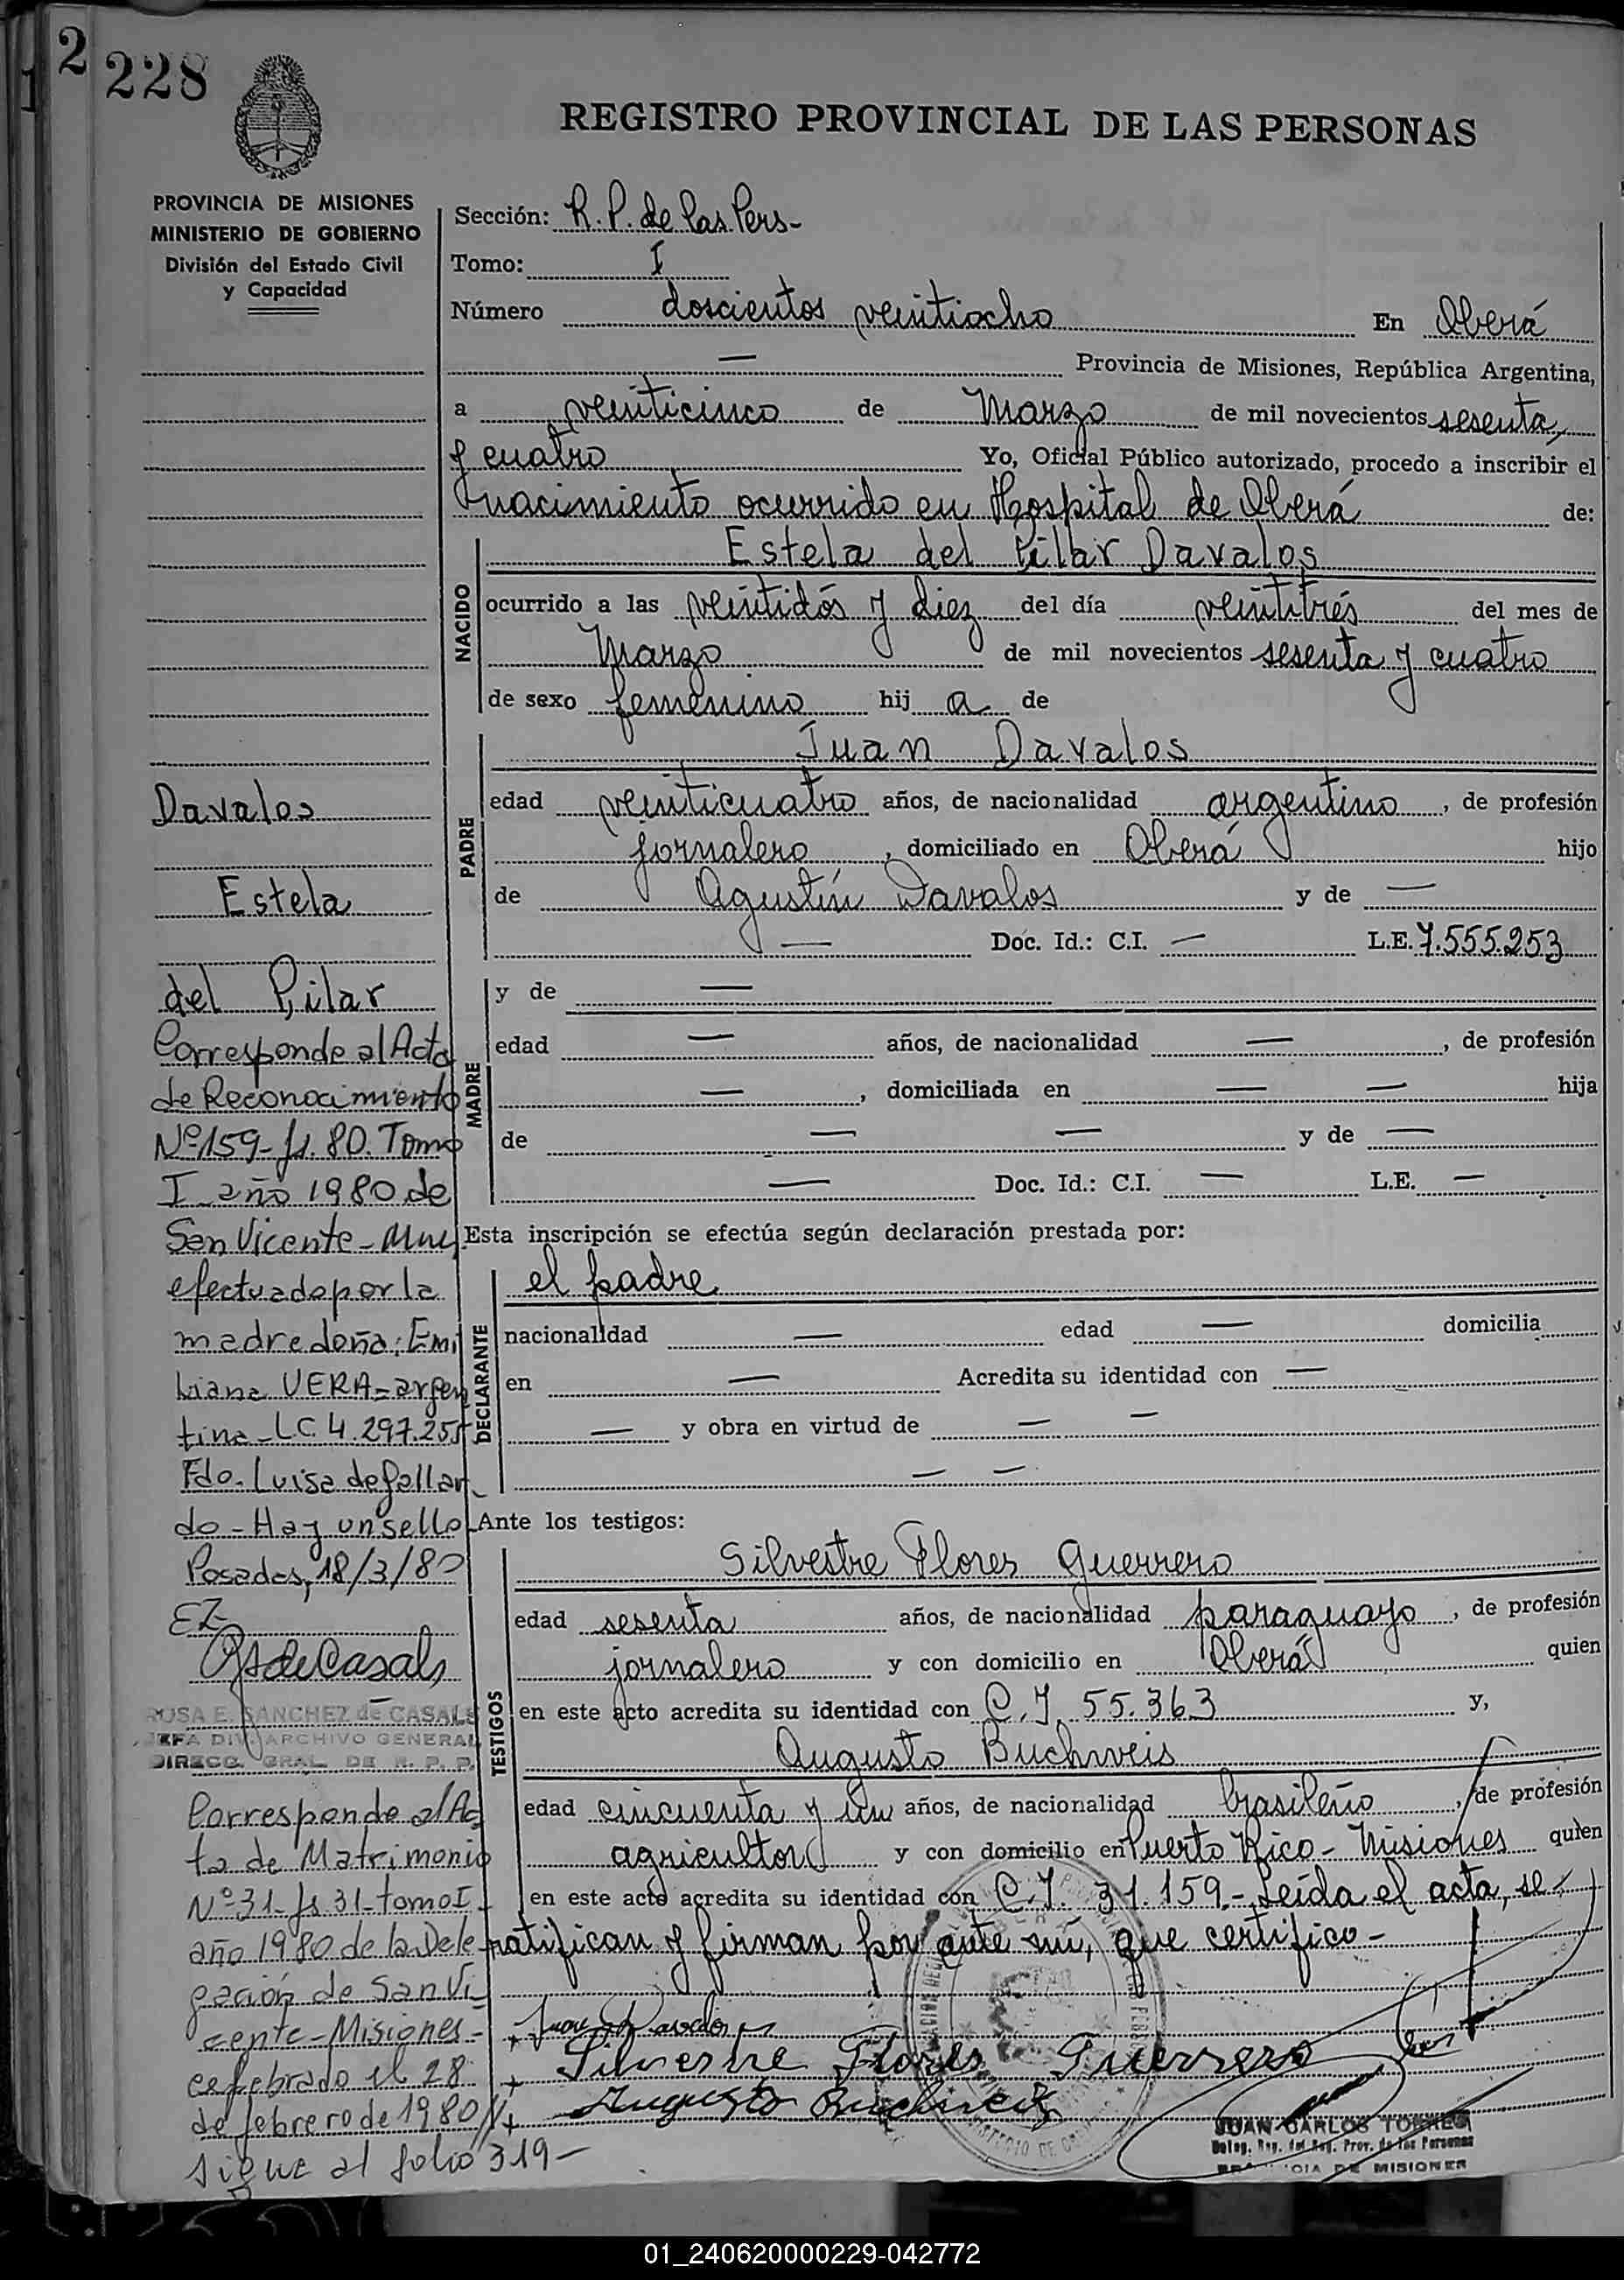 2
228
REGISTRO PROVINCIAL DE LAS PERSONAS
PROVINCIA DE MISIONES
MINISTERIO DE GOBIERNO
División del Estado Civil
y Capacidad
Sección: R. P. de las Pers-
Tomo: I
Número doscientos veintiocho En Oberá
— Provincia de Misiones, República Argentina,
a veinticinco de Marzo de mil novecientos sesenta
y cuatro Yo, Oficial Público autorizado, procedo a inscribir el
nacimiento ocurrido en Hospital de Oberá de:
NACIDO
Estela del Pilar Davalos
ocurrido a las veintidós y diez del día veintitrés del mes de
Marzo de mil novecientos sesenta y cuatro
de sexo femenino hij a de
PADRE
Juan Davalos
edad veinticuatro años, de nacionalidad argentino, de profesión
jornalero, domiciliado en Oberá hijo
de Agustín Davalos y de —
— Doc. Id.: C.I. — L.E. 7.555.253
MADRE
y de —
edad — años, de nacionalidad —, de profesión
—, domiciliada en — — hija
de — — y de —
— Doc. Id.: C.I. — L.E. —
Esta inscripción se efectúa según declaración prestada por:
DECLARANTE
el padre
nacionalidad — edad — domicilia
en — Acredita su identidad con —
— y obra en virtud de — —
— —
Ante los testigos:
TESTIGOS
Silvestre Flores Guerrero
edad sesenta años, de nacionalidad paraguayo, de profesión
jornalero y con domicilio en Oberá quien
en este acto acredita su identidad con C.I. 55.363 y,
Augusto Buchweis
edad cincuenta y un años, de nacionalidad brasileño, de profesión
agricultor y con domicilio en Puerto Rico - Misiones quien
en este acto acredita su identidad con C.I. 31.159.- Leída el acta, se
ratifican y firman por ante mí, que certifico-
Juan Davalos
Silvestre Flores Guerrero
Augusto Buchweis
JUAN CARLOS TORRES
Prov. de las Personas
DE MISIONES
Davalos
Estela
del Pilar
Corresponde al Acta
de Reconocimiento
Nº 159- fs. 80. Tomo
I año 1980 de
San Vicente-
efectuado por la
madre doña: Emi
liana VERA=argen
tina-LC 4.297.255
Fdo. Luisa de Gallar
do-Hay un sello-
Posadas, 18/3/80
EZ-
RS de Casals
ROSA E. SANCHEZ de CASALS
JEFA DIV. ARCHIVO GENERAL
DIRECC. GRAL. DE R. P. P.
Corresponde al Ac
ta de Matrimonio
Nº 31-fs 31-tomo I-
año 1980 de la Dele
gación de San Vi
cente-Misiones-
celebrado el 28
de febrero de 1980//
sigue al folio 319-
01_240620000229-042772